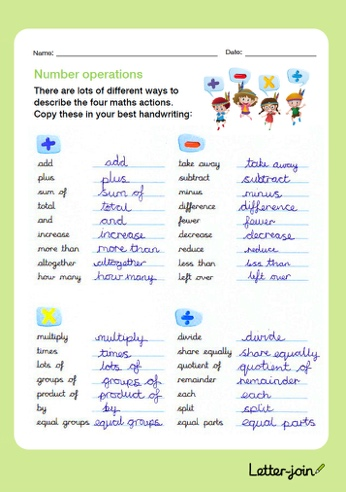 Name: Date:
Number operations
There are lots of different ways to
describe the four maths actions.
Copy these in your best handwriting:
+ - x ÷
+
add add
plus plus
sum of sum of
total total
and and
increase increase
more than more than
altogether altogether
how many how many
-
take away take away
subtract subtract
minus minus
difference difference
fewer fewer
decrease decrease
reduce reduce
less than less than
left over left over
x
multiply multiply
times times
lots of lots of
groups of groups of
product of product of
by by
equal groups equal groups
÷
divide divide
share equally share equally
quotient of quotient of
remainder remainder
each each
split split
equal parts equal parts
Letter-join